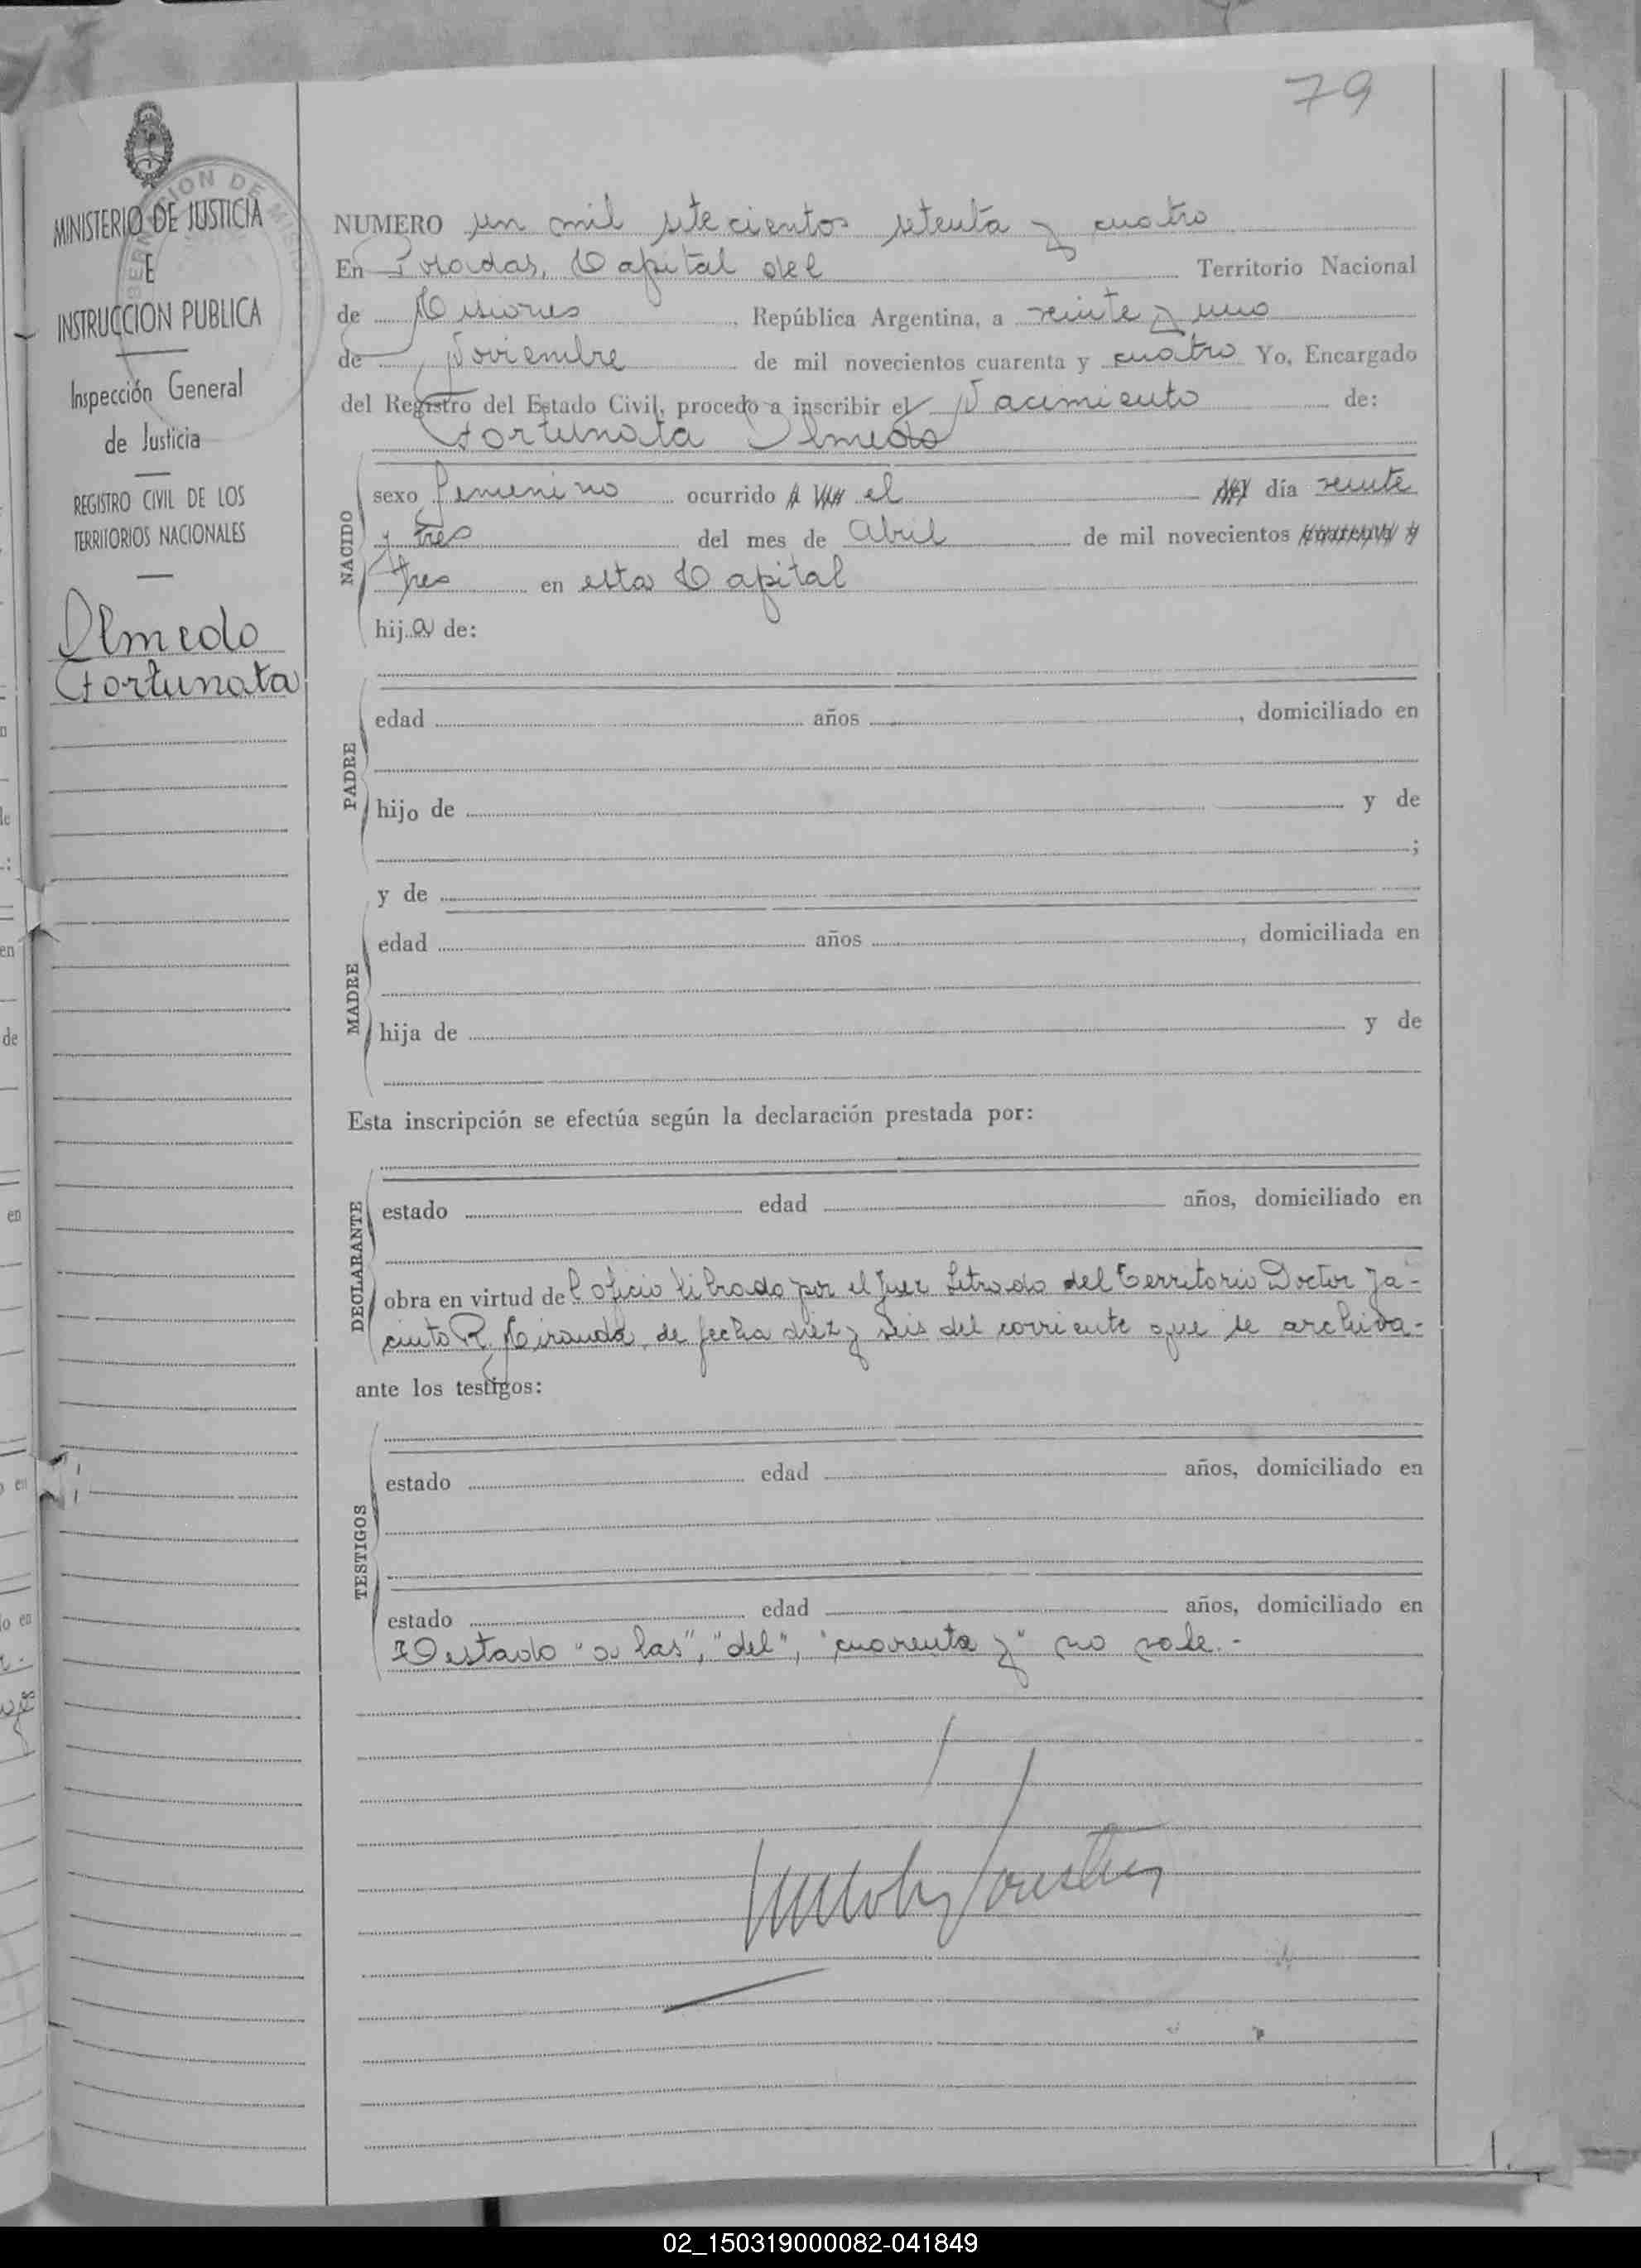 79
MINISTERIO DE JUSTICIA
E
INSTRUCCION PUBLICA
Inspección General
de Justicia
REGISTRO CIVIL DE LOS
TERRITORIOS NACIONALES
Olmedo
Fortunata
NUMERO un mil setecientos setenta y cuatro
En Posadas, Capital del Territorio Nacional
de Misiones, República Argentina, a veinte y uno
de Noviembre de mil novecientos cuarenta y cuatro Yo, Encargado
del Registro del Estado Civil, procedo a inscribir el Nacimiento de:
Fortunata Olmedo
NACIDO
sexo femenino ocurrido a las el del día veinte
y tres del mes de Abril de mil novecientos cuarenta y
tres en esta Capital
hija de:
PADRE
edad años , domiciliado en
hijo de y de
;
y de
MADRE
edad años , domiciliada en
hija de y de
Esta inscripción se efectúa según la declaración prestada por:
DECLARANTE
estado edad años, domiciliado en
obra en virtud del oficio librado por el Juez Letrado del Territorio Doctor Ja-
cinto R. Miranda, de fecha diez y seis del corriente que se archiva.-
ante los testigos:
TESTIGOS
estado edad años, domiciliado en
estado edad años, domiciliado en
Testado "a las", "del", "cuarenta y" no vale.-
02_150319000082-041849